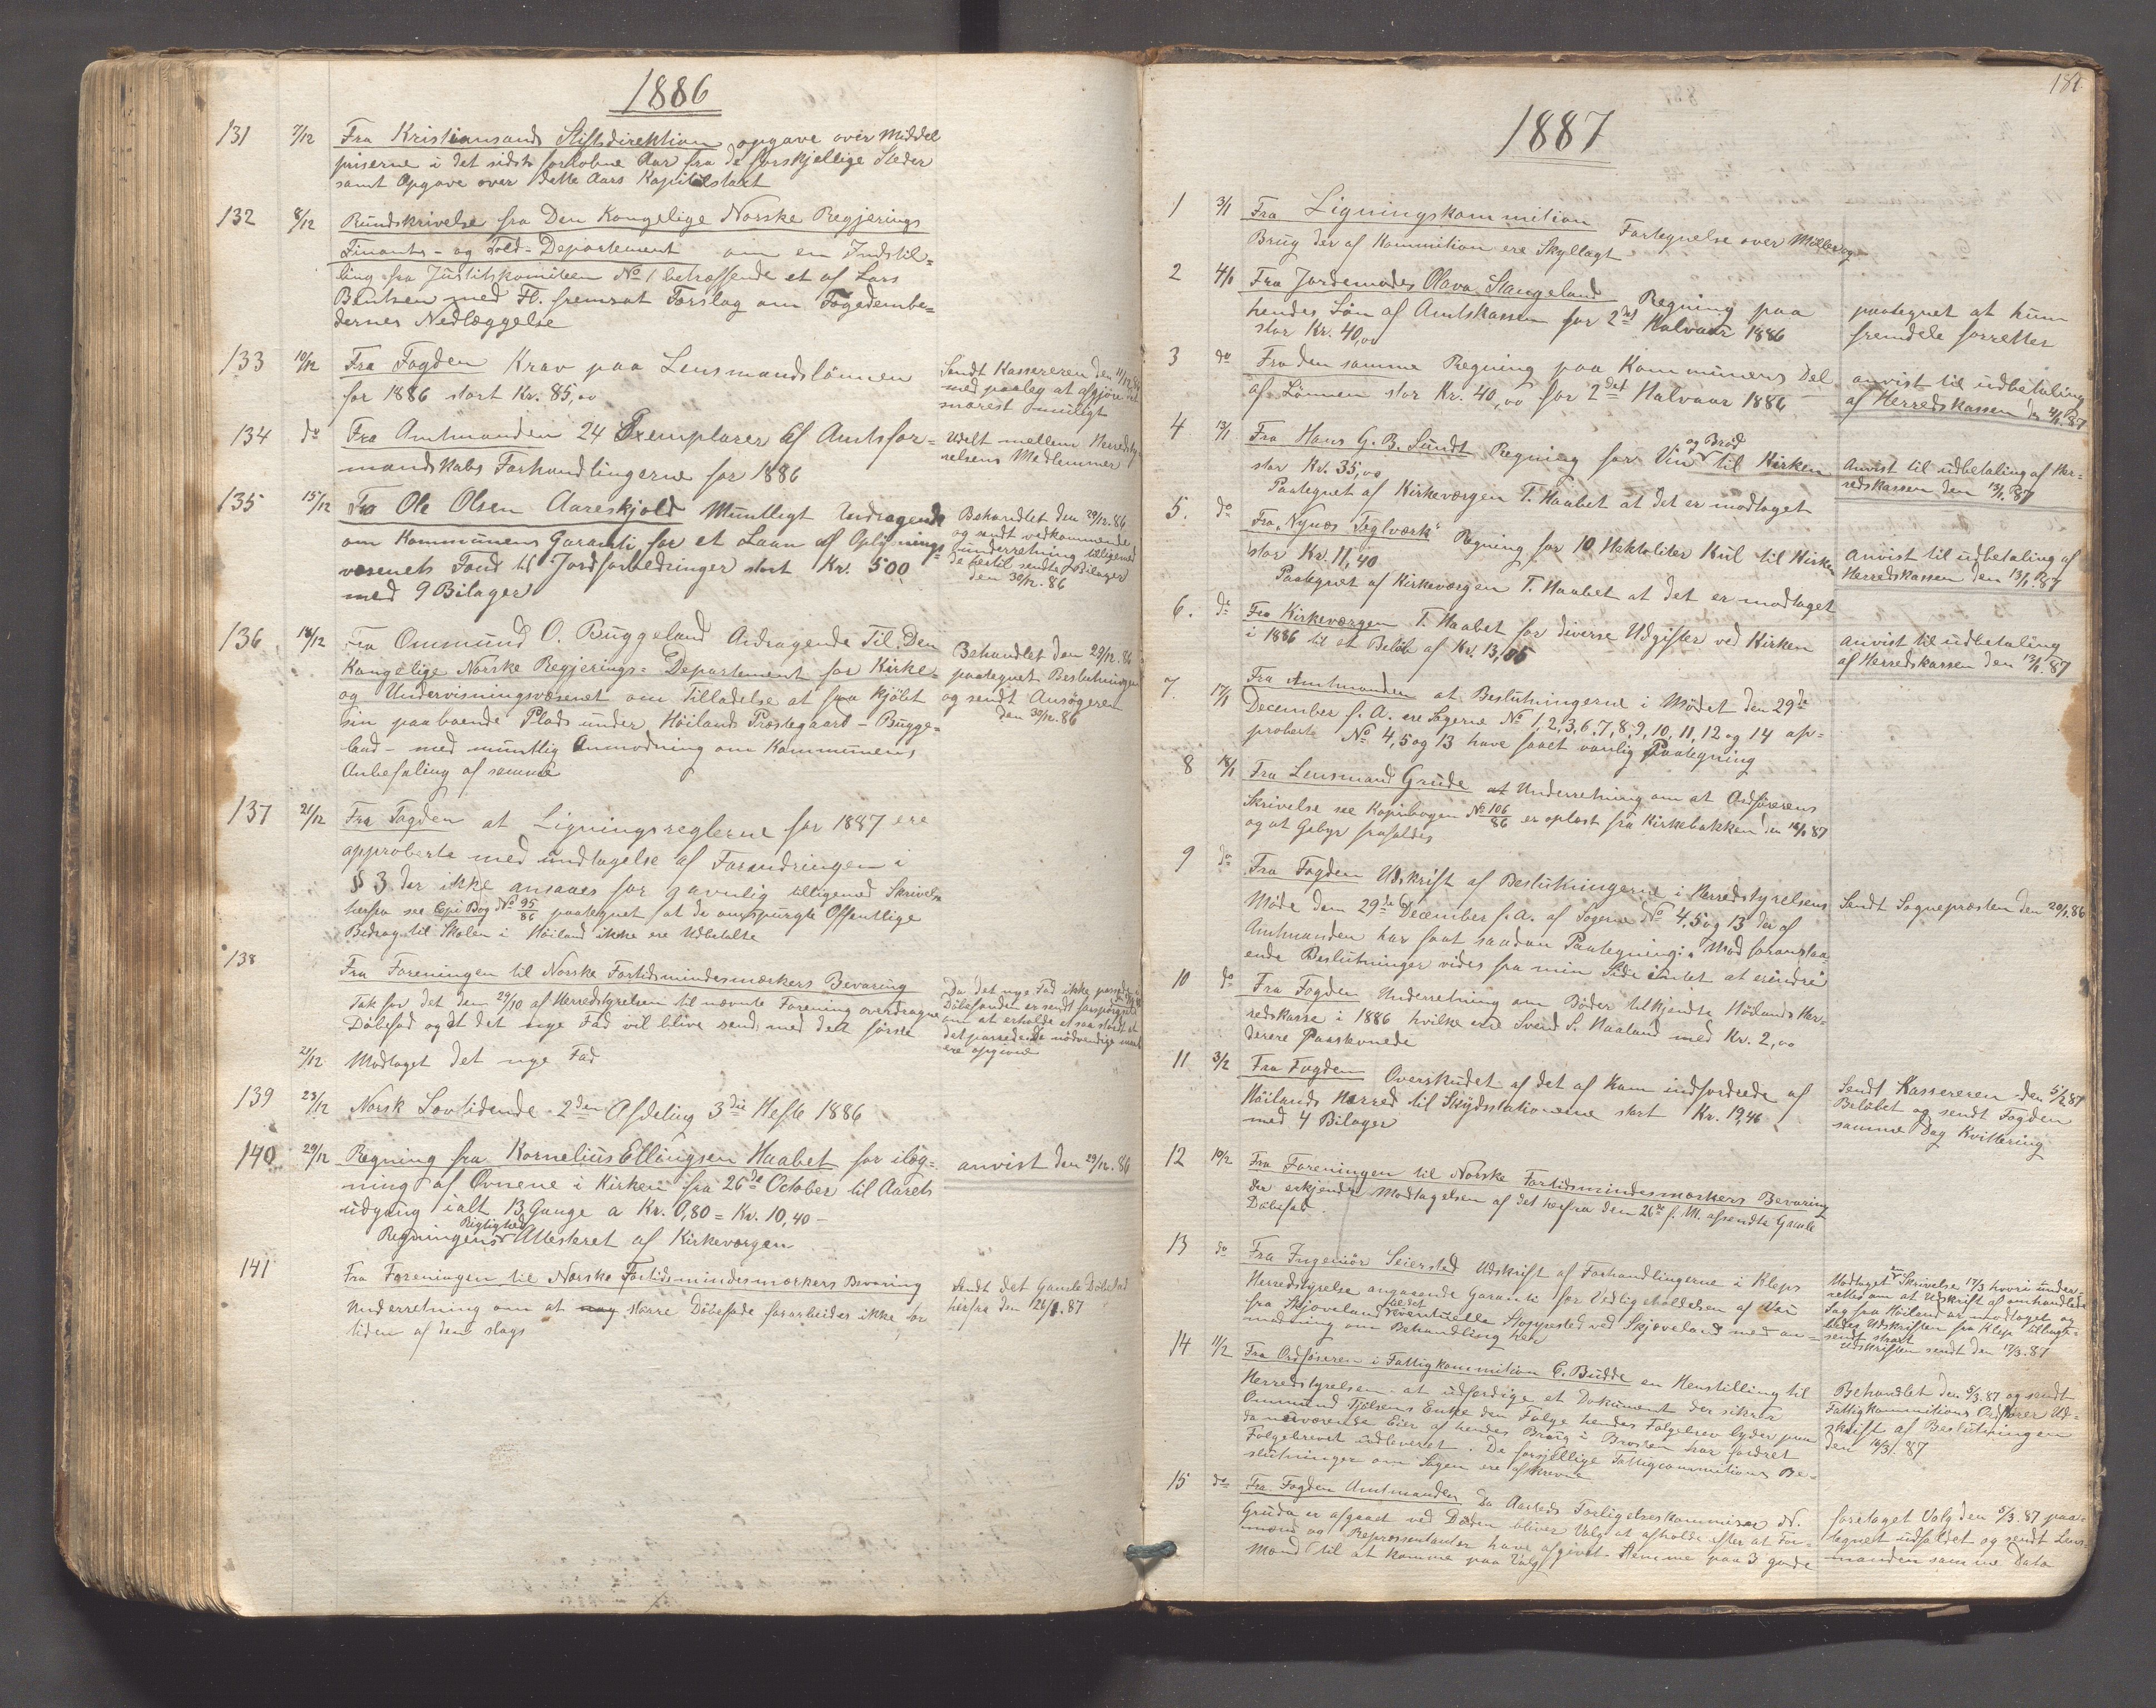 1886
131 7/12 Fra Kristiansands Stiftsdirektion opgave over Middel
priserne i det sidst forløbne Aar fra de forskjellige Steder
samt Opgave over dette Aars Kapitelstaxt
132 8/12 Rundskrivelse fra Den Kongelige Norske Regjerings
Finants- og Told-Departement om en Indstil=
ling fra Justitskomiteen No 1 betræffende et af Lars
Bentsen med Fl. fremsat Forslag om Fogedembe=
dernes Nedlæggelse
133 10/12 Fra Fogden Krav paa Lensmandslønnen
for 1886 stort Kr. 85,00
Sendt Kassereren den 11/12.86
med paalæg at afgjøre det
snarest muligt
134 do Fra Amtmanden 24 Exemplarer af Amtsfor=
mandskabs Forhandlingerne for 1886
Udelt mellem Herredsty
relsens Medlemmer
135 15/12 Fra Ole Olsen Aareskjold Muntligt Andragende
om Kommunens Garanti for et Laan af Oplysnings=
væsenets Fond til Jordforbedringer stort Kr. 500
med 9 Bilager
Behandlet den 29/12.86
og sendt vedkommende
underretning tilligemed
de hertil sendte Bilager
den 30/12.86
136 18/12 Fra Ommund O. Buggeland Andragende Til Den
Kongelige Norske Regjerings= Departement for Kirke=
og Undervisningsvæsenet om tilladelse at faa kjøbt
sin paaboende Plads under Høilands Præstegaard - Bugge=
land - med muntlig Anmodning om Kommunens
Anbefaling af samme
Behandlet den 29/12.86
paategnet Beslutningen
og sendt Ansøgeren
den 30/12.86
137 21/12 Fra Fogden at Ligningsreglerne for 1887 ere
approberte med undtagelse af Forandringen i
§ 3 der ikke ansaaes for gavnlig tilligemed Skrivelse
herfra see Copi Bog No 95/86 paategnet at de omspurgte Offentlige
Bidrag til Skolen i Høiland ikke ere Udbetalte
138 Fra Foreningen til Norske Fortidsmindesmærkers Bevaring
Tak for det den 29/10 af Herredstyrelsen til nævnte Forening overdragne
Döbefad og at det nye Fad vil blive sendt med det første
Da det nye Fad ikke passede i
Döbefonden er sendt forespørgsel
om at erholde et saa stort at
det passede. De nødvendige maal
ere opgivne
21/12 Modtaget det nye Fad
139 23/12 Norsk Lovtidende 2den Afdeling 3die Hefte 1886
140 29/12 Regning fra Kornelius Ellingsen Haabet for ilæg=
ning af Ovnene i Kirken fra 26de October til Aarets
udgang ialt 13 Gange a Kr. 0,80 = Kr. 10,40 -
Regningens Rigtighed Attesteret af Kirkeværgen
anvist den 29/12.86
141 Fra Foreningen til Norske Fortidsmindesmærkers Bevaring
Underretning om at nog større Döbefade forarbeides ikke for
tiden af den slags
Sendt det Gamle Döbefad
herfra den 26/1.87
181.
1887
1 3/1 Fra Ligningskommition Fortegnelse over Møller og
Brug der af Kommition ere Skyllagt
2 4/1 Fra Jordemodes Olava Stangeland Regning paa
hendes Løn af Amtskassen for 2det Halvaar 1886
stor Kr. 40,00
paategnet at hun
fremdele forretter
3 do Fra den samme Regning paa Kommunens Del
af Lønnen stor Kr. 40,00 for 2det Halvaar 1886
anvist til udbetaling
af Herredskassen den 4/1.87
4 13/1 Fra Hans G. B. Sundt Regning for Vin og Brød til Kirken
stor Kr. 35,00
Paategnet af Kirkeværgen T. Haabet at det er modtaget
Anvist til udbetaling af Her-
redskassen den 13/1.87
5. do Fra "Nynæs Teglværk" Regning for 10 Hektoliter Kul til Kirken
stor Kr. 11,40
Paategnet af Kirkeværgen T. Haabet at det er modtaget
Anvist til udbetaling af
Herredskassen den 13/1.87
6. do Fra Kirkeværgen T. Haabet for diverse Udgifter ved Kirken
i 1886 til et Beløb af Kr. 13,05
anvist til udbetaling
af Herredskassen den 13/1.87
7. 17/1 Fra Amtmanden at Beslutningerne i Mødet den 29de
December f. A. ere Sagerne No 1, 2, 3, 6, 7, 8, 9, 10, 11, 12 og 14 ap=
proberte No 4, 5 og 13 have faaet vanlig Paategning
8 18/1 Fra Lensmand Grude at Underretning om at Ordførerens
Skrivelse see Kopibogen No 106/86 er oplæst fra Kirkebakken den 16/1.87
og at Gebyr frafaldes
9 do Fra Fogden Udskrift af Beslutningerne i Herredstyrelsens
Møde den 29de December f. A. af Sagerne No 4, 5 og 13 der af
Amtmanden har faat saadan Paategning: Mod foranstaa-
ende Beslutninger vides fra min Side intet at erindre
Sendt Sognepræsten den 20/1.86
10 do Fra Fogden Underretning om Bøder tilkjendte Høilands Her-
redskasse i 1886 hvilke ere Svend S. Haaland med Kr. 2,00
derere Paaskevnede
11 3/2 Fra Fogden Overskudet af det af Ham indfordrede af
Høilands Herred til Skydsstationerne stort Kr. 19,46
med 4 Bilager
Sendt Kassereren den 5/2.87
Beløbet og sendt Fogden
samme Dag Kvittering
12 10/2 Fra Foreningen til Norske Fortidsmindesmærkers Bevaring
der erkjender Modtagelsen af det herfra den 26de f. M. afsendte Gamle
Döbefad.
13 do Fra Ingeniør Seiersted Udskrift af Forhandlingerne i Kleps
Herredstyrelse angaaende Garanti for Vedligeholdelsen af Vei
fra Skjæveland til det eventuelle Stoppested ved Skjæveland med an=
modning om Behandling her
Modtaget en Skrivelse 17/3 hvori under-
rettes om at Udskrift af omhandlede
Sag fra Höiland er modtaget og
bedes Udskriften fra Klep tilbage-
sendt strax
Udskriften sendt den 17/3.87
14 11/2 Fra Ordføreren i Fattigkommition C. Budde en Henstilling til
Herredstyrelsen at udfærdige et Dokument der sikrer
Ommund Tjølsens Enke den Følge hendes Følgebrev lyder paa
da nuværende Eier af hendes Brug i Brosten har fordret
Følgebrevet udleveret. De forsjellige Fattigcommitions Be=
slutninger om Sagen ere afskrevne
Behandlet den 5/3.87 og sendt
Fattigkommitions Ordfører Ud=
skrift af Beslutningen
den 16/3.87
15 do Fra Fogden Amtmanden Da Aasteds Forligelseskommisær N.
Gruda er afgaaet ved Døden bliver Valg at afholde efter at For-
mænd og Repræsentanter have afgivet Stemme paa 3 gode
Mænd til at komme paa Valg
foretaget Valg den 5/3.87 paa-
tegnet udfaldet og sendt Lens-
manden samme Dato